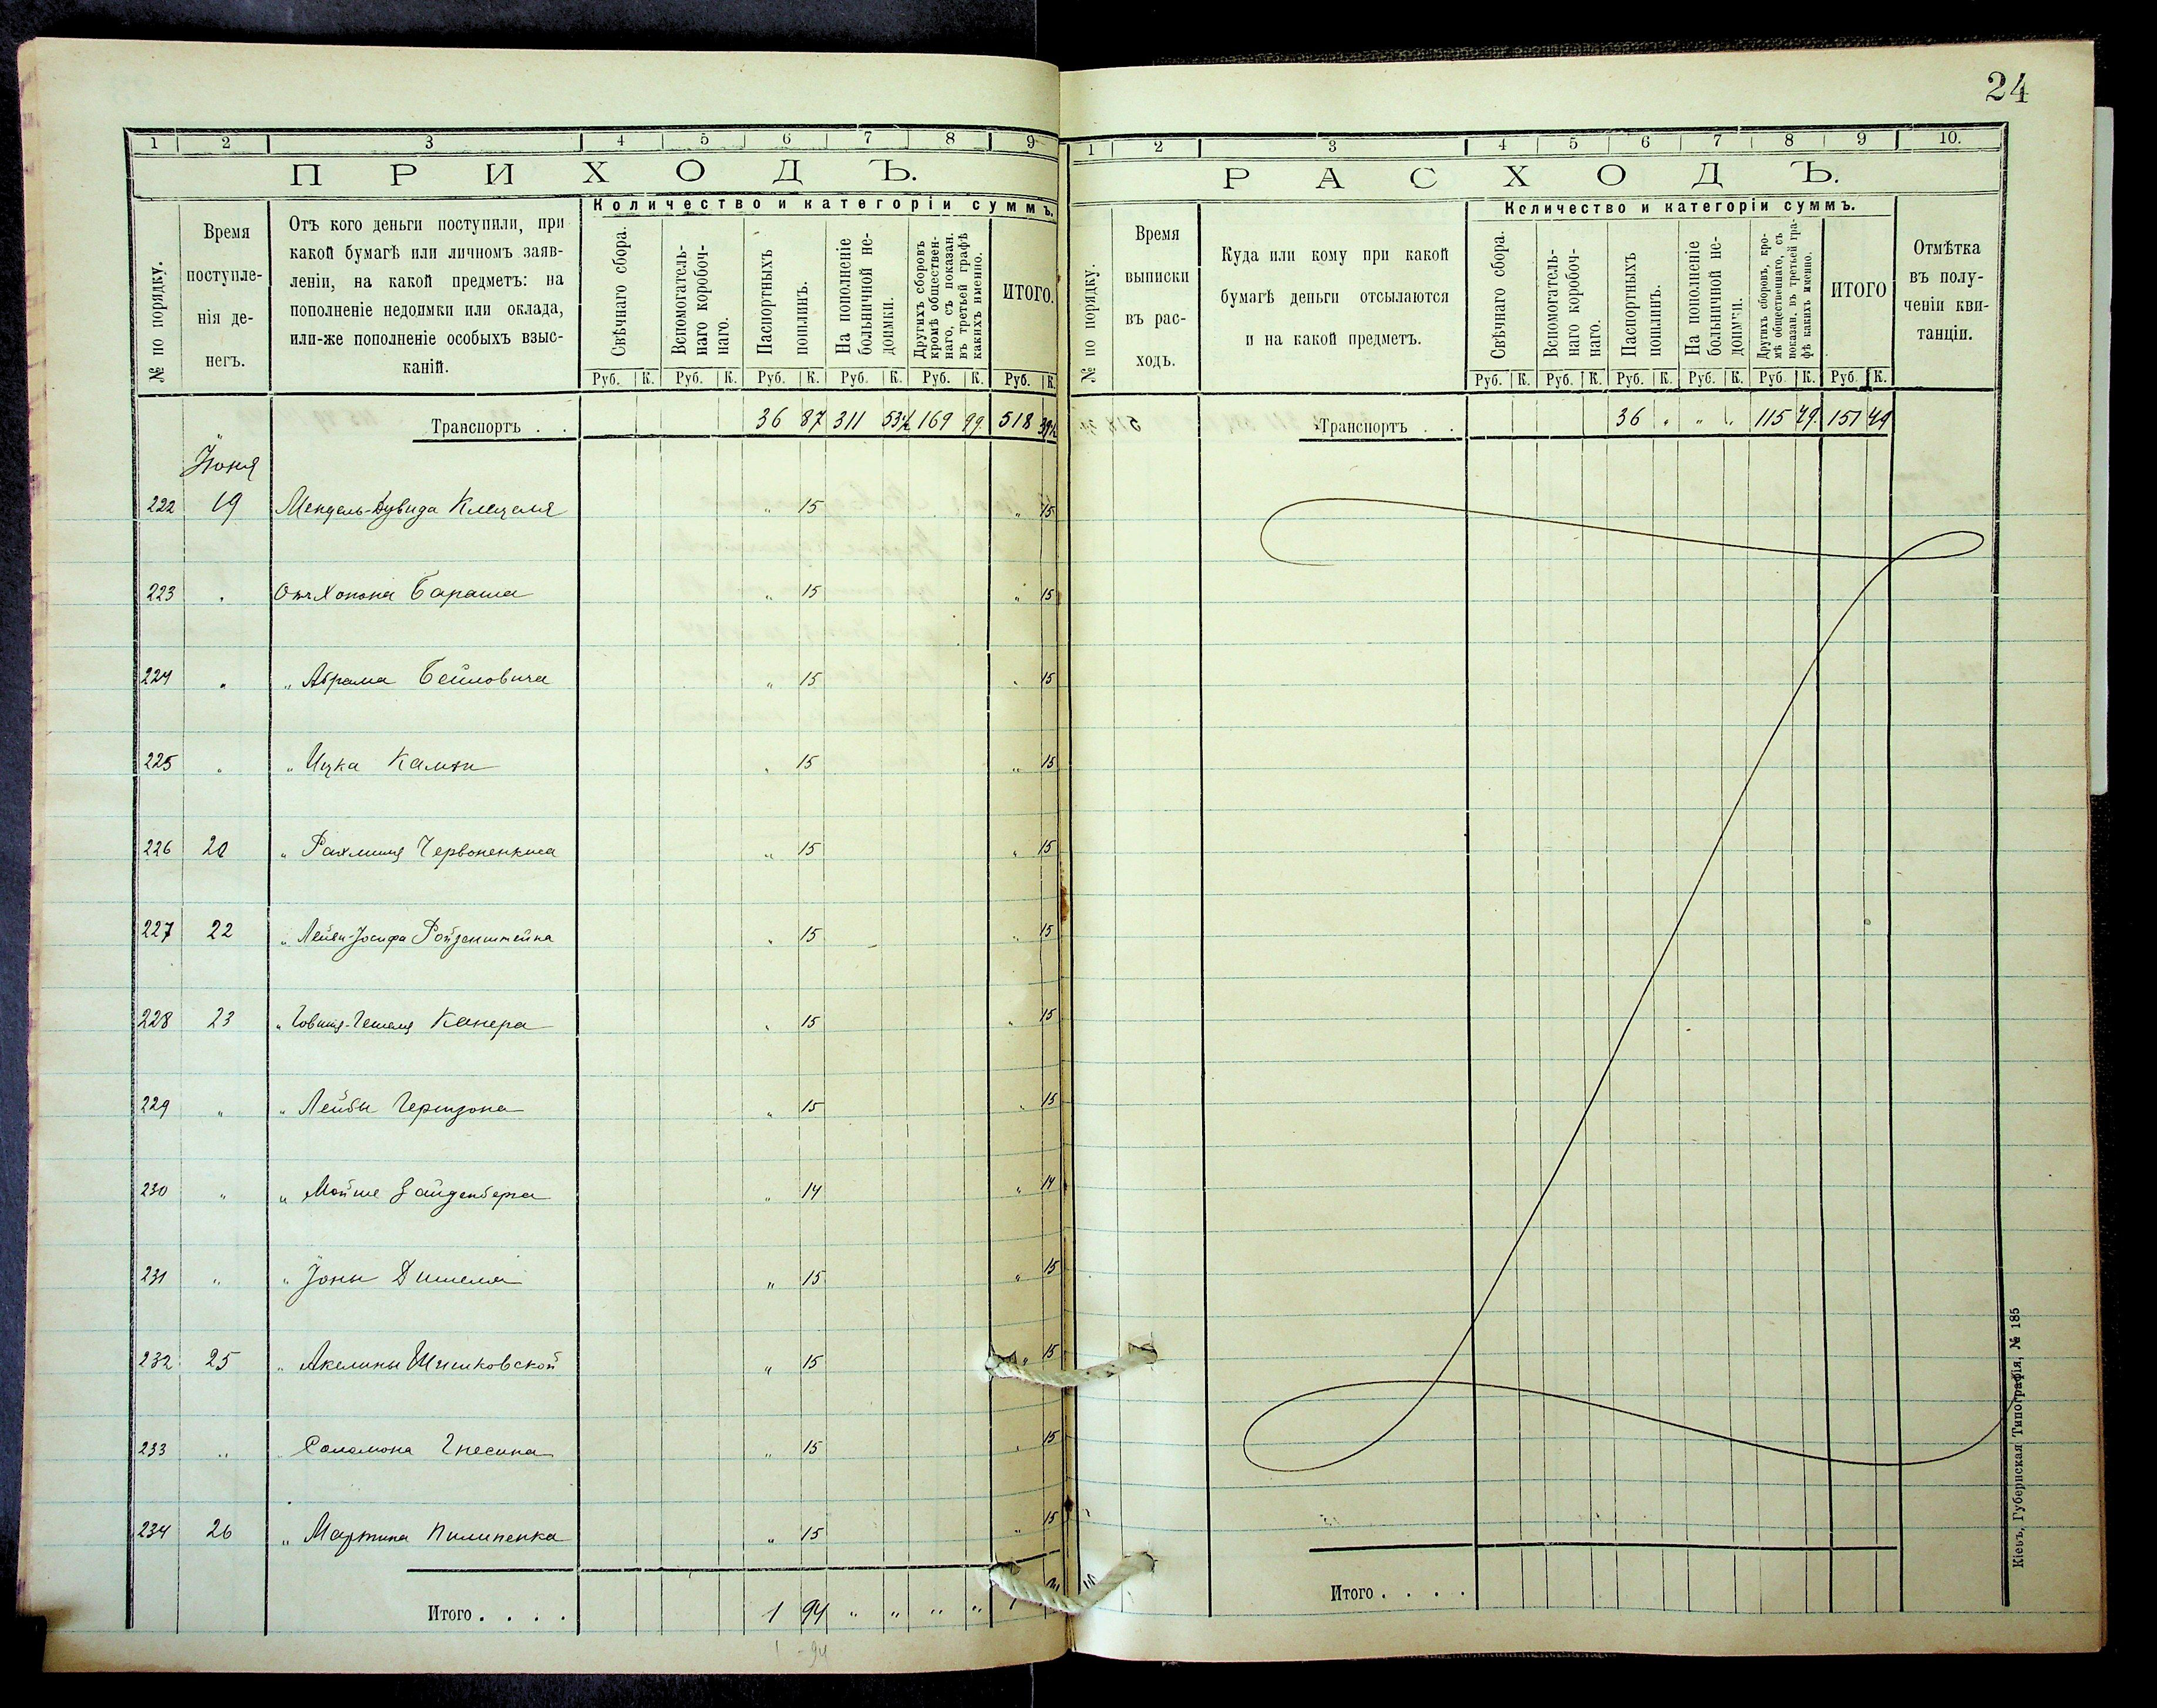 24
1 2 3 4 5 6 7 8 9
ПРИХОДЪ.
№ по порядку.
Время поступле-
нія де-
негъ.
Отъ кого деньги поступили, при
какой бумагѣ или личномъ заяв-
леніи, на какой предметъ: на
пополненіе недоимки или оклада,
или-же пополненіе особыхъ взыс-
каній.
Количество и категоріи суммъ.
Свѣчнаго сбора.
Вспомогатель-
наго коробоч-
наго.
Паспортныхъ
пошлинъ.
На пополненіе
больничной не-
доимки.
Другихъ сборовъ
кромѣ обществен-
наго, съ показан.
въ третьей графѣ
какихъ именно.
ИТОГО.
Руб. К. Руб. К. Руб. К. Руб. К. Руб. К. Руб. К.
Транспортъ . . 36 87 311 53½ 169 99 518 39½
Іюня
222 19 Мендель-Дувида " 15 " 15
223 " Отъ Хонона Бараша " 15 " 15
224 " " Абрама Бейловича " 15 " 15
225 " " Ицка " 15 " 15
226 20 " Рахмиля Червоненкиса " 15 " 15
227 22 " Лейви-Іосифа Ройзенштейна " 15 " 15
228 23 " Канера " 15 " 15
229 " " Лейбы Герцзона " 15 " 15
230 " " Мойше Зайденберга " 14 " 14
231 " " Іоны " 15 " 15
232 25 " Акелины Шишковской " 15 " 15
233 " " Соломона Гнесина " 15 " 15
234 26 " Мартина Пилипенка " 15 " 15
Итого . . . . 1 94 " " " "
1 - 94
1 2 3 4 5 6 7 8 9 10.
РАСХОДЪ.
№ по порядку.
Время
выписки
въ рас-
ходъ.
Куда или кому при какой
бумагѣ деньги отсылаются
и на какой предметъ.
Количество и категоріи суммъ.
Свѣчнаго сбора.
Вспомогатель-
наго коробоч-
наго.
Паспортныхъ
пошлинъ.
На пополненіе
больничной не-
доимки.
Другихъ сборовъ, кро-
мѣ общественнаго, съ
показан. въ третьей гра-
фѣ какихъ именно.
ИТОГО
Отмѣтка
въ полу-
ченіи кви-
танціи.
Руб. К. Руб. К. Руб. К. Руб. К. Руб. К. Руб. К.
Транспортъ . . 36 " " " 115 49 151 49
Итого . . . .
Кіевъ, Губернская Типографія, № 185